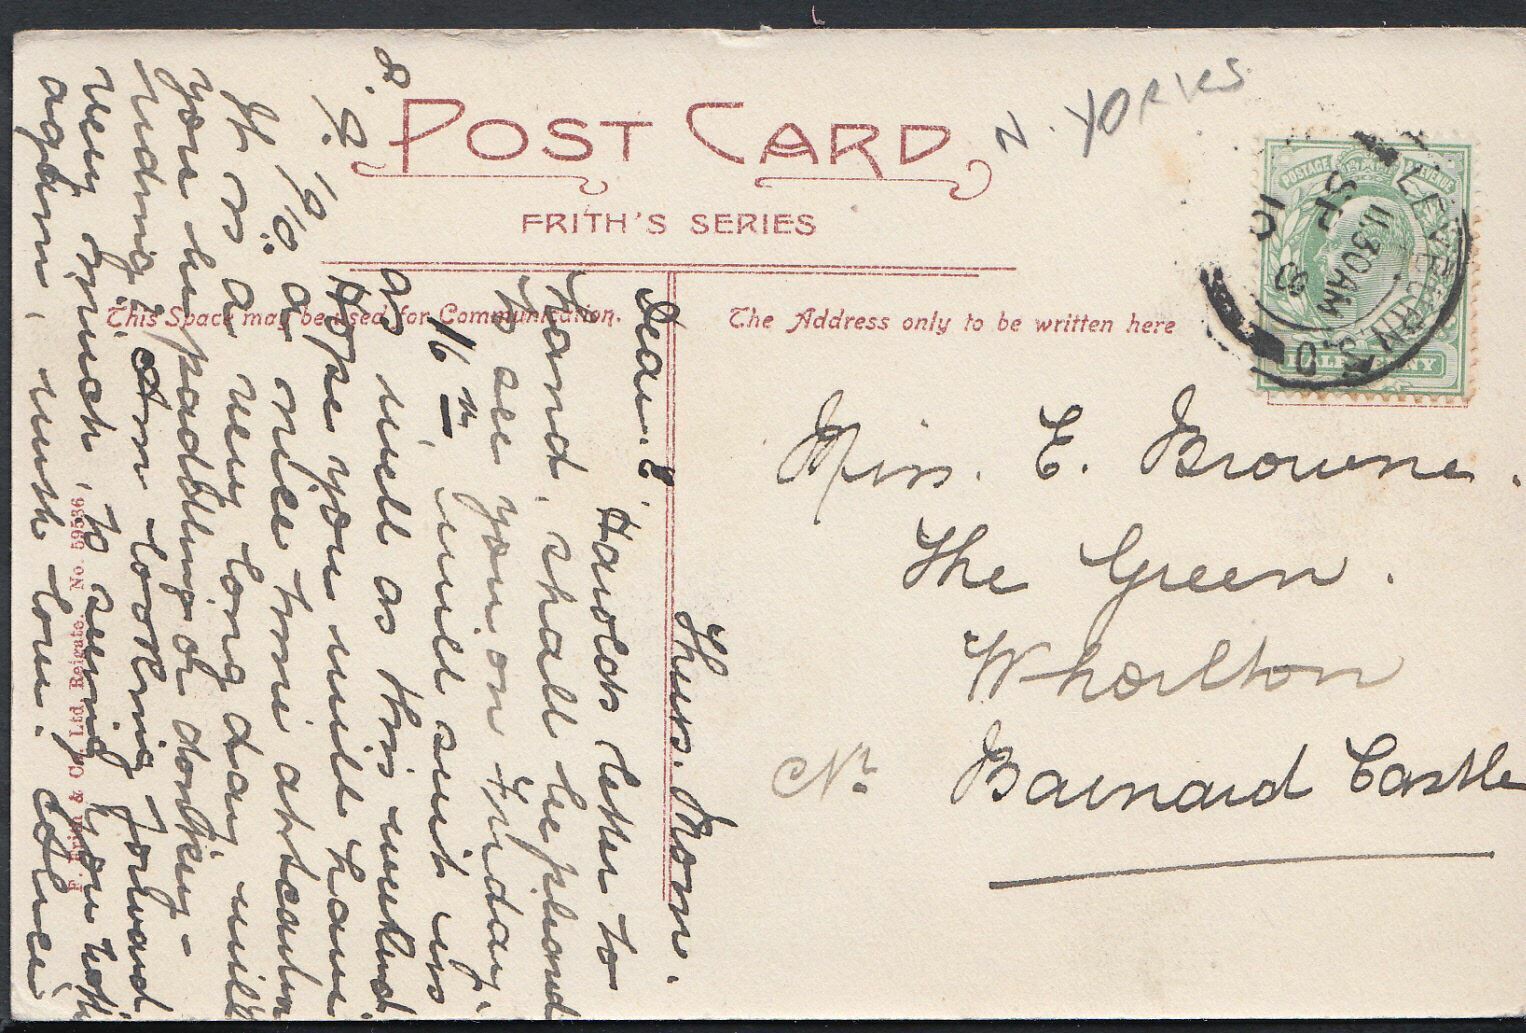 POST CARD
N. YORKS
FRITH'S SERIES
This Space may be used for Communication.
The Address only to be written here
POSTAGE & REVENUE
HALFPENNY
LEYBURN S.O
11.30AM
SP 8
10
Miss. E. Browne.
The Green.
Whorlton
Nr. Barnard Castle
8.9.1910.
Thurs. Morn.
Dear E. Harolds letter to
hand, shall be pleased
to see you on Friday,
16th will suit us
as well as this weekend
Hope you will have
a nice time at Seaton
It is a very long day will
you be paddling or donkey-
riding? Am looking forward
very much, to seeing you both
again, with love.
F. Frith & Co., Ltd. Reigate. No. 59536